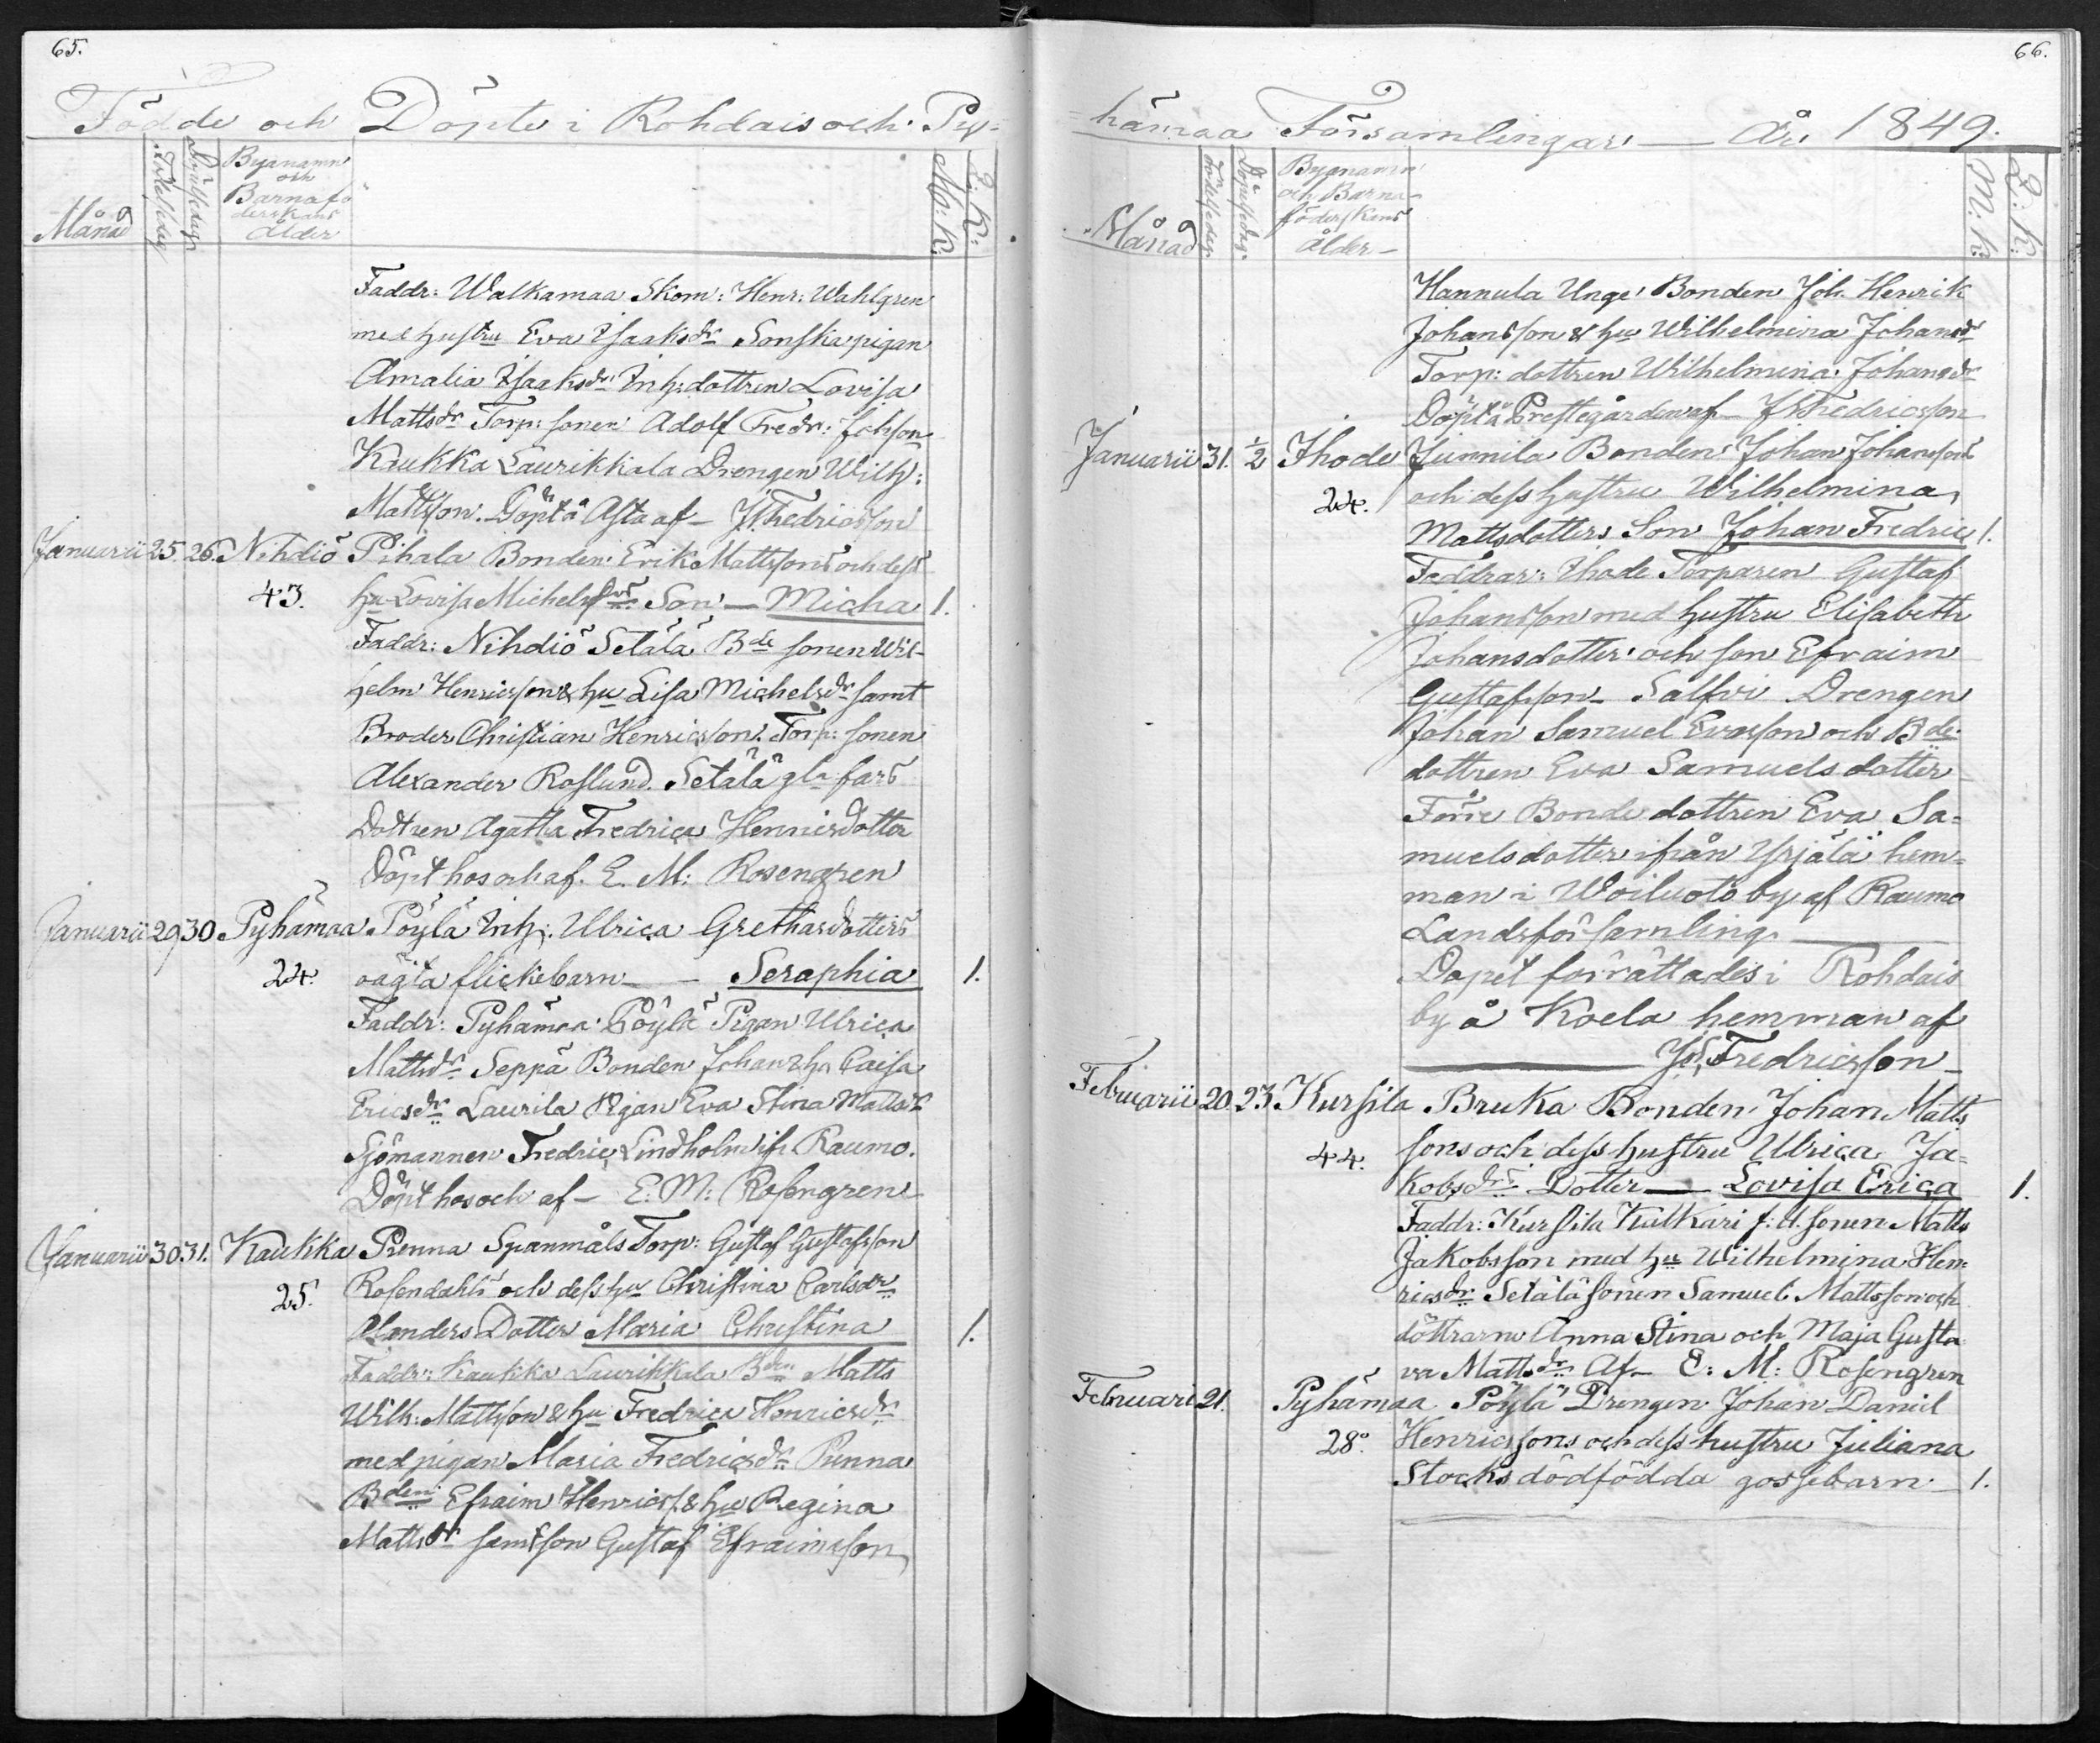 65.
Födde och Döpte i Rohdais och Py-
Månad
Födelsedag
Döpelsedag
Byanamn
och
Barnafö
derskans
ålder
M: K:
Q: K:
Faddr: Walkamaa Skom: Henr: Wahlgren
med hustru Eva Isaksdr Sonska pigan
Amalia Isaaksdr Inh: dottren Lovisa
Mattsdr Torp: sonen Adolf Fredr:
Kaukka Laurikkala Drengen Wilh:
Mattsson. Döpt å af J. Fredricsson
Januarii 25. 26. Nihdiö Pihala Bonden Erik Mattssons och dess
43. hu Lovisa Michelsdrs Son — Micha 1.
Faddr: Nihdiö Setälä Bde sonen Wil-
helm Henricsson & hu Lisa Michelsdr samt
Broder Christian Henricsson. Torp: sonen
Alexander Roslund. Setälä gla fars
Dottren Agatha Fredrica Henricsdotter
Döpt hos och af. E. M: Rosengren
Januarii 29 30. Pyhämaa Pöylä Inh: Ulrica Grethasdotters
24. oägta flickebarn — Seraphia 1.
Faddr: Pyhämaa Pöylä Pigan Ulrica
Mattsdr Seppä Bonden Johan & hu Caisa
Ericsdr Laurila Pigan Eva Stina Mattsdr
Sjömannen Fredric Lindholm ifr Raumo.
Döpt hos och af — E: M: Rosengren
Januarii 30. 31. Kaukka Prenna Spanmåls Torp: Gustaf Gustafsson
25. Rosendahls och dess hu Christina Carlsdr
Alanders Dotter Maria Christina 1.
Faddr: Kaukka Laurikkala Bden Matts
Wilh: Mattsson & hu Fredrica Henricsdr
med pigan Maria Fredricsdr Punna
Bden Efraim Henricss & hu Regina
Mattsdr samt son Gustaf Efraimsson
66.
hämaa Församlingar — År 1849.
Månad
Födelsedag
Döpelsedag
Byanamn
och Barna-
föderskans
ålder —
M: K:
Q: K:
Hannula Unge Bonden Joh. Henrik
Johansson & hu Wilhelmina Johansdr
Torp: dottren Wilhelmina Johansdr
Döpt å Prestegården af — J Fredricsson
Januarii 31. ½ Ihode Junnila Bonden Johan Johanssons
24. och dess hustru Wilhelmina
Mattsdotters Son Johan Fredric 1.
Faddrar: Ihode Torparen Gustaf
Johansson med hustru Elisabeth
Johansdotter och son Efraim
Gustafsson — Salfvi Drengen
Johan Samuel Evasson och Bde
dottren Eva Samuelsdotter
Förre Bonde dottren Eva Sa=
muelsdotter ifrån Yrjälä hem=
man i Woiluoto by af Raumo
Landsförsamling. —
Dopet förrättades i Rohdais
by å Koela hemman af
— Fredricsson —
Februarii 20 23 Kursila Bruka Bonden Johan Matts
44. sons och dess hustru Ulrica Ja=
kobsdrs Dotter — Lovisa Erica 1.
Faddr: Kursila Kulkari f: d. sonen Matts
Jakobsson med hu Wilhelmina Hen=
ricsdr Setälä sonen Samuel Mattsson och
döttrarne Anna Stina och Maja Gusta
va Mattsdr Af — E: M: Rosengren
Februari 21. Pyhämaa Pöylä Drengen Johan Daniel
28. Henricssons och dess hustru Juliana
Stocks dödfödda gossebarn — 1.